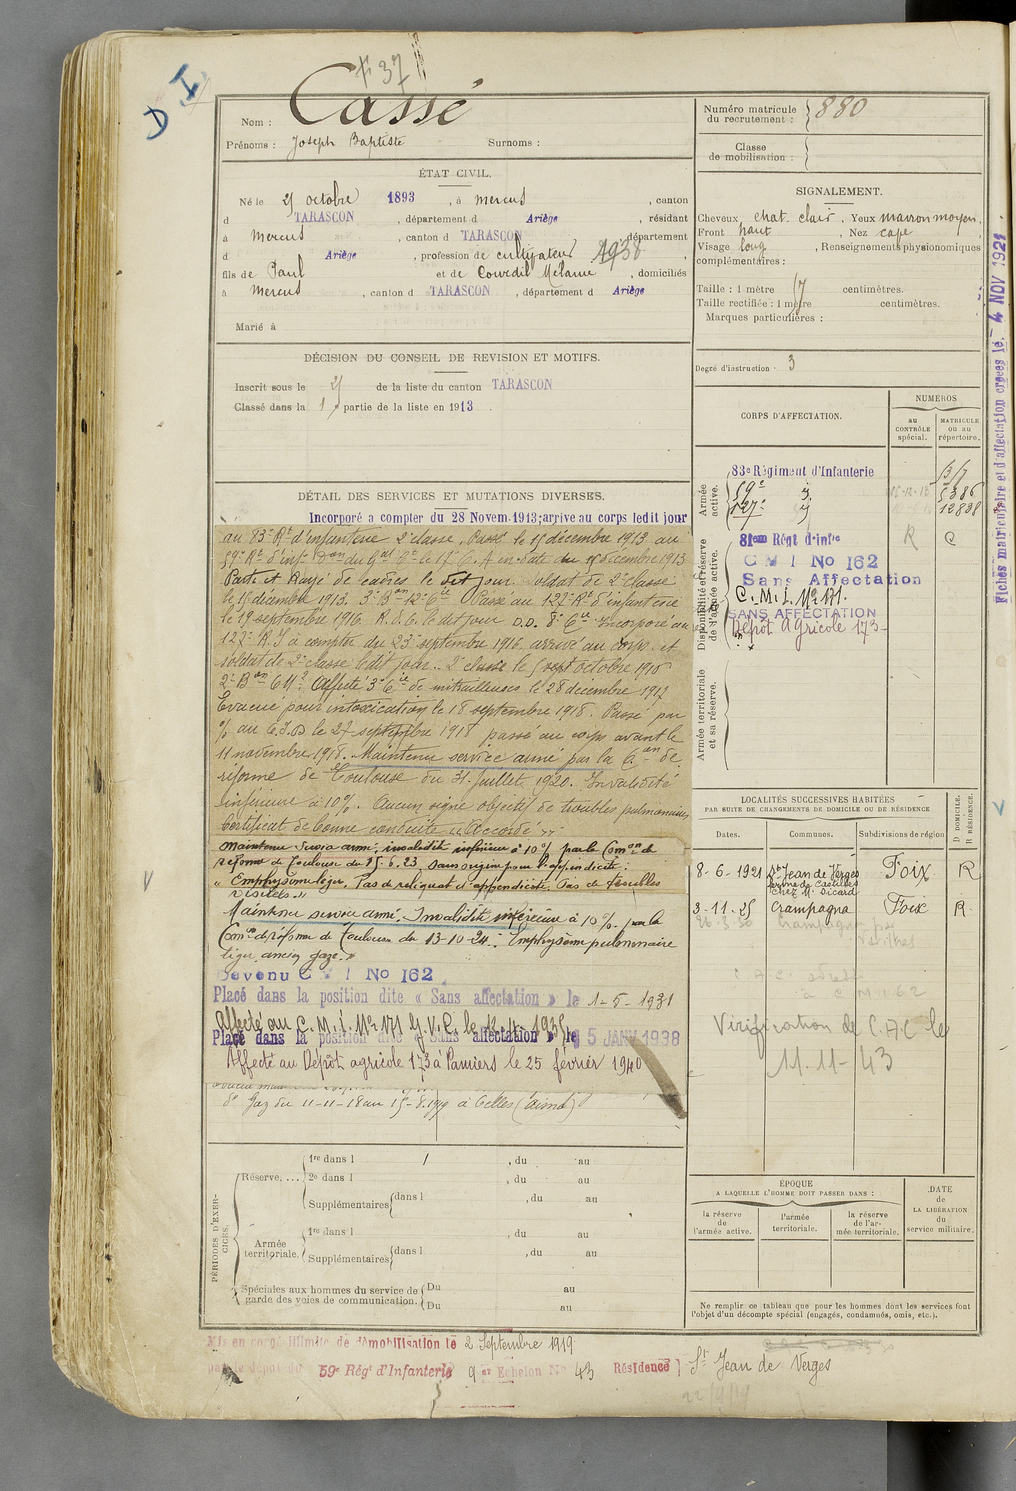 D I
#37
Nom : Cassé
Prénoms : Joseph Baptiste Surnoms :
ÉTAT CIVIL.
Né le octobre 1893, à Mercus, canton
d TARASCON, département d Ariège, résidant
à Mercus, canton d TARASCON, département
d Ariège, profession de cultivateur 1938
fils de Paul et de Courdil Mélanie, domiciliés
à Mercus, canton d TARASCON, département d Ariège
Marié à
DÉCISION DU CONSEIL DE REVISION ET MOTIFS.
Inscrit sous le de la liste du canton TARASCON
Classé dans la 1 partie de la liste en 1913.
DÉTAIL DES SERVICES ET MUTATIONS DIVERSES.
Incorporé a compter du 28 Novem. 1913; arrive au corps ledit jour
au 83e Rt d'infanterie 2e classe. Passé le 15 décembre 1913 au
59e Rt d'inf. en date du 15 décembre 1913
Parti et Rayé de cadres le dit jour. Soldat de 2e classe
le 15 décembre 1913. 3e Bon 12e Cie Passé au 127e Rt d'infanterie
le 19 septembre 1916. le dit jour D.D. 8e Cie Incorporé au
127e R.I à compter du 23 septembre 1916 arrivé au corps et
soldat de 2e classe le dit jour. 2e classe le octobre 1915
2e Bon Affecté 3e Cie de mitrailleuses le 28 décembre 1917
Evacué pour intoxication le 18 septembre 1918. Passé par
% au C.I.D le 27 septembre 1918 passé au corps avant le
11 novembre 1918. Maintenu service armé par la Con de
réforme de Toulouse du 31 juillet 1920. Invalidité
inférieure à 10%. Aucun signe objectif de troubles pulmonaires
Certificat de bonne conduite "Accordé"
Maintenu Service armé, invalidité inférieure à 10% par la Comon de
réforme de Toulouse du 15.6.23 sans origine pour l'appendicite.
"Emphysème léger. Pas de reliquat d'appendicite. Pas de troubles
Maintenu service armé. Invalidité inférieure à 10% par la
Comon de réforme de Toulouse du 13-10-24. Emphysème pulmonaire
léger, ancien gazé."
Devenu C M I No 162
Placé dans la position dite « Sans affectation » le 1-5-1931
Affecté au C.M.I. No 171
Placé dans la position dite « Sans affectation » le 15 JANV 1938
Affecté au Dépôt agricole 173 à Pamiers le 25 février 1940
Gaz du 11-11-18 au à Celles
PÉRIODES D'EXERCICES.
Réserve,... 1re dans l , du au
2e dans l , du au
Supplémentaires dans l , du au
Armée territoriale. 1re dans l , du au
Supplémentaires dans l , du au
Spéciales aux hommes du service de garde des voies de communication. Du au
Du au
Mis en congé illimité de démobilisation le 2 Septembre 1919
par le dépôt du 59e Régt d'Infanterie 9 er Echelon No 43 Résidence St Jean de Verges
Numéro matricule du recrutement : 880
Classe de mobilisation :
SIGNALEMENT.
Cheveux chat. clair, Yeux marron moyen,
Front haut, Nez cave
Visage long, Renseignements physionomiques
complémentaires :
Taille : 1 mètre centimètres.
Taille rectifiée : 1 mètre centimètres.
Marques particulières :
Degré d'instruction 3
CORPS D'AFFECTATION.
NUMÉROS
au CONTRÔLE spécial.
MATRICULE ou au répertoire.
Armée active.
83e Régiment d'Infanterie
59e
127e 12838
Disponibilité et réserve de l'armée active.
81eme Régt d'infie R C
C M I No 162
Sans Affectation
C.M.I. No 171.
SANS AFFECTATION
Dépôt Agricole 173
Armée territoriale et sa réserve.
LOCALITÉS SUCCESSIVES HABITÉES
PAR SUITE DE CHANGEMENTS DE DOMICILE OU DE RÉSIDENCE
Dates. Communes. Subdivisions de région
D DOMICILE.
R RÉSIDENCE.
8-6-1921 St Jean de Verges Foix R
chez M. Sicard
3-11-25 Crampagna Foix R
Vérification de C.A.C le
11.11-43
ÉPOQUE
A LAQUELLE L'HOMME DOIT PASSER DANS :
DATE de LA LIBÉRATION du service militaire.
la réserve de l'armée active.
l'armée territoriale.
la réserve de l'armée territoriale.
Ne remplir ce tableau que pour les hommes dont les services font
l'objet d'un décompte spécial (engagés, condamnés, omis, etc.).
Fiches matriculaire et d'affectation créées le: 4 NOV 1921